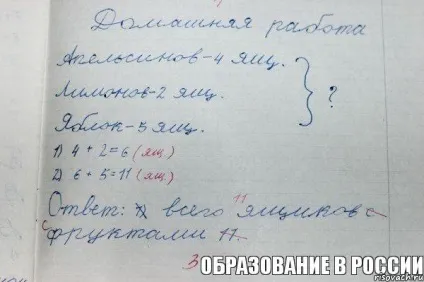 Домашняя работа
Апельсинов-4 ящ.
Лимонов-2 ящ. ?
Яблок-5 ящ.
1) 4 + 2=6 (ящ)
2) 6 + 5=11 (ящ)
11
Ответ: всего ящиков с
с фруктами 11.
3
ОБРАЗОВАНИЕ В РОССИИ
risovach.ru